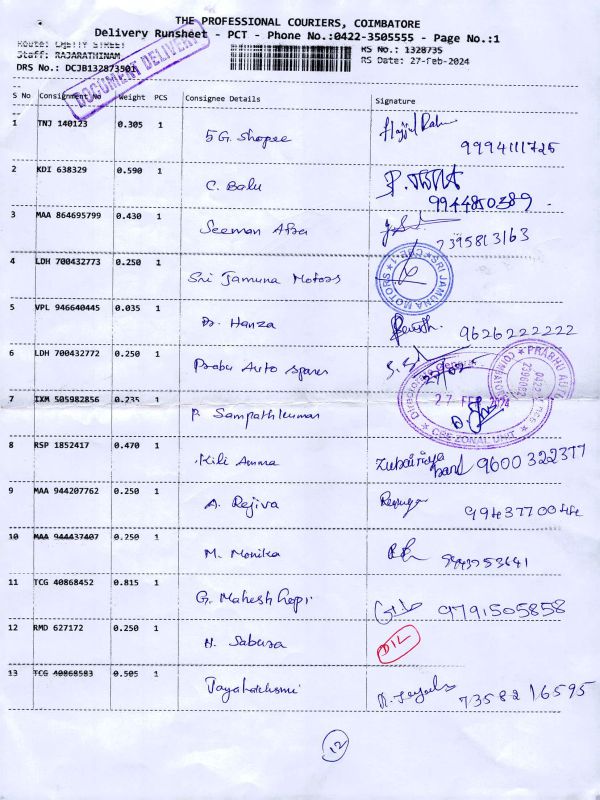 THE PROFESSIONAL COURIERS, COIMBATORE
Delivery Runsheet - PCT - Phone No.:0422-3505555 - Page No.:1
Route: CHETTY STREET
RS No.: 1328735
Staff: RAJARATHINAM
RS Date: 27-Feb-2024
DRS No.: DCJB132873501
DOCUMENT DELIVERY
S No Consignment No Weight PCS Consignee Details Signature
1 TNJ 140123 0.305 1 5G. Shopee 9994111725
2 KDI 638329 0.590 1 C. Balu 9944850389
3 MAA 864695799 0.430 1 Seeman 2395813163
4 LDH 700432773 0.250 1 Sri Jamuna Motors SRI JAMUNA MOTORS
5 VPL 946640445 0.035 1 Hanza 9626222222
6 LDH 700432772 0.250 1 Prabu Auto Spares
7 IXM 505982856 0.235 1 P. Sampathkumar 27 FEB 2024 CBE ZONAL UNIT
8 RSP 1852417 0.470 1 Kili Amma 9600322377
9 MAA 944207762 0.250 1 A. Rejiva
10 MAA 944437407 0.250 1 M. Monika
11 TCG 40868452 0.815 1 G. Mahesh Gopi 9791505858
12 RMD 627172 0.250 1 N. Sabura DIL
13 TCG 40868583 0.505 1 Jayalakshmi 7358216595
12